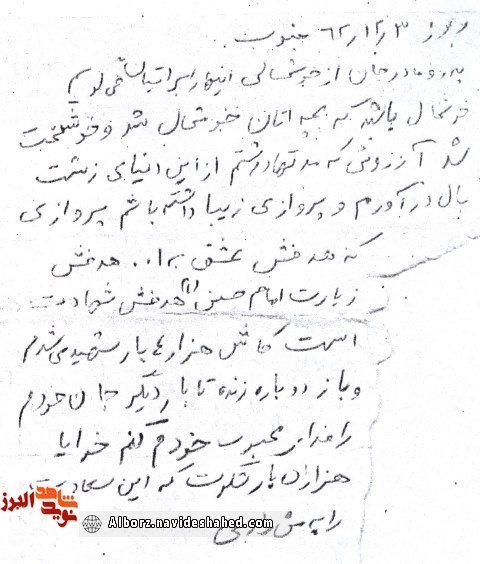 امروز ۶۲/۱۲/۳ جنوب
پدر و مادر جان از خوشحالی اینها را براتان می‌نویسم
خوشحال باشید که بچه اتان خوشحال شد و خوشبخت
شد آرزوئی که مدتها داشتم از این دنیای زشت
بال در آورم و پروازی زیبا داشته باشم پروازی
که هدفش عشق خدا.. هدفش
زیارت امام حسین (ع) هدفش شهادت
است کاش هزارها بار شهید می‌شدم
و باز دوباره زنده تا بار دیگر جان خودم
را فدای محبوب خودم کنم خدایا
هزاران بار شکرت که این سعادت
را به من دادی
شاهد
نوید
البرز
Alborz.navideshahed.com